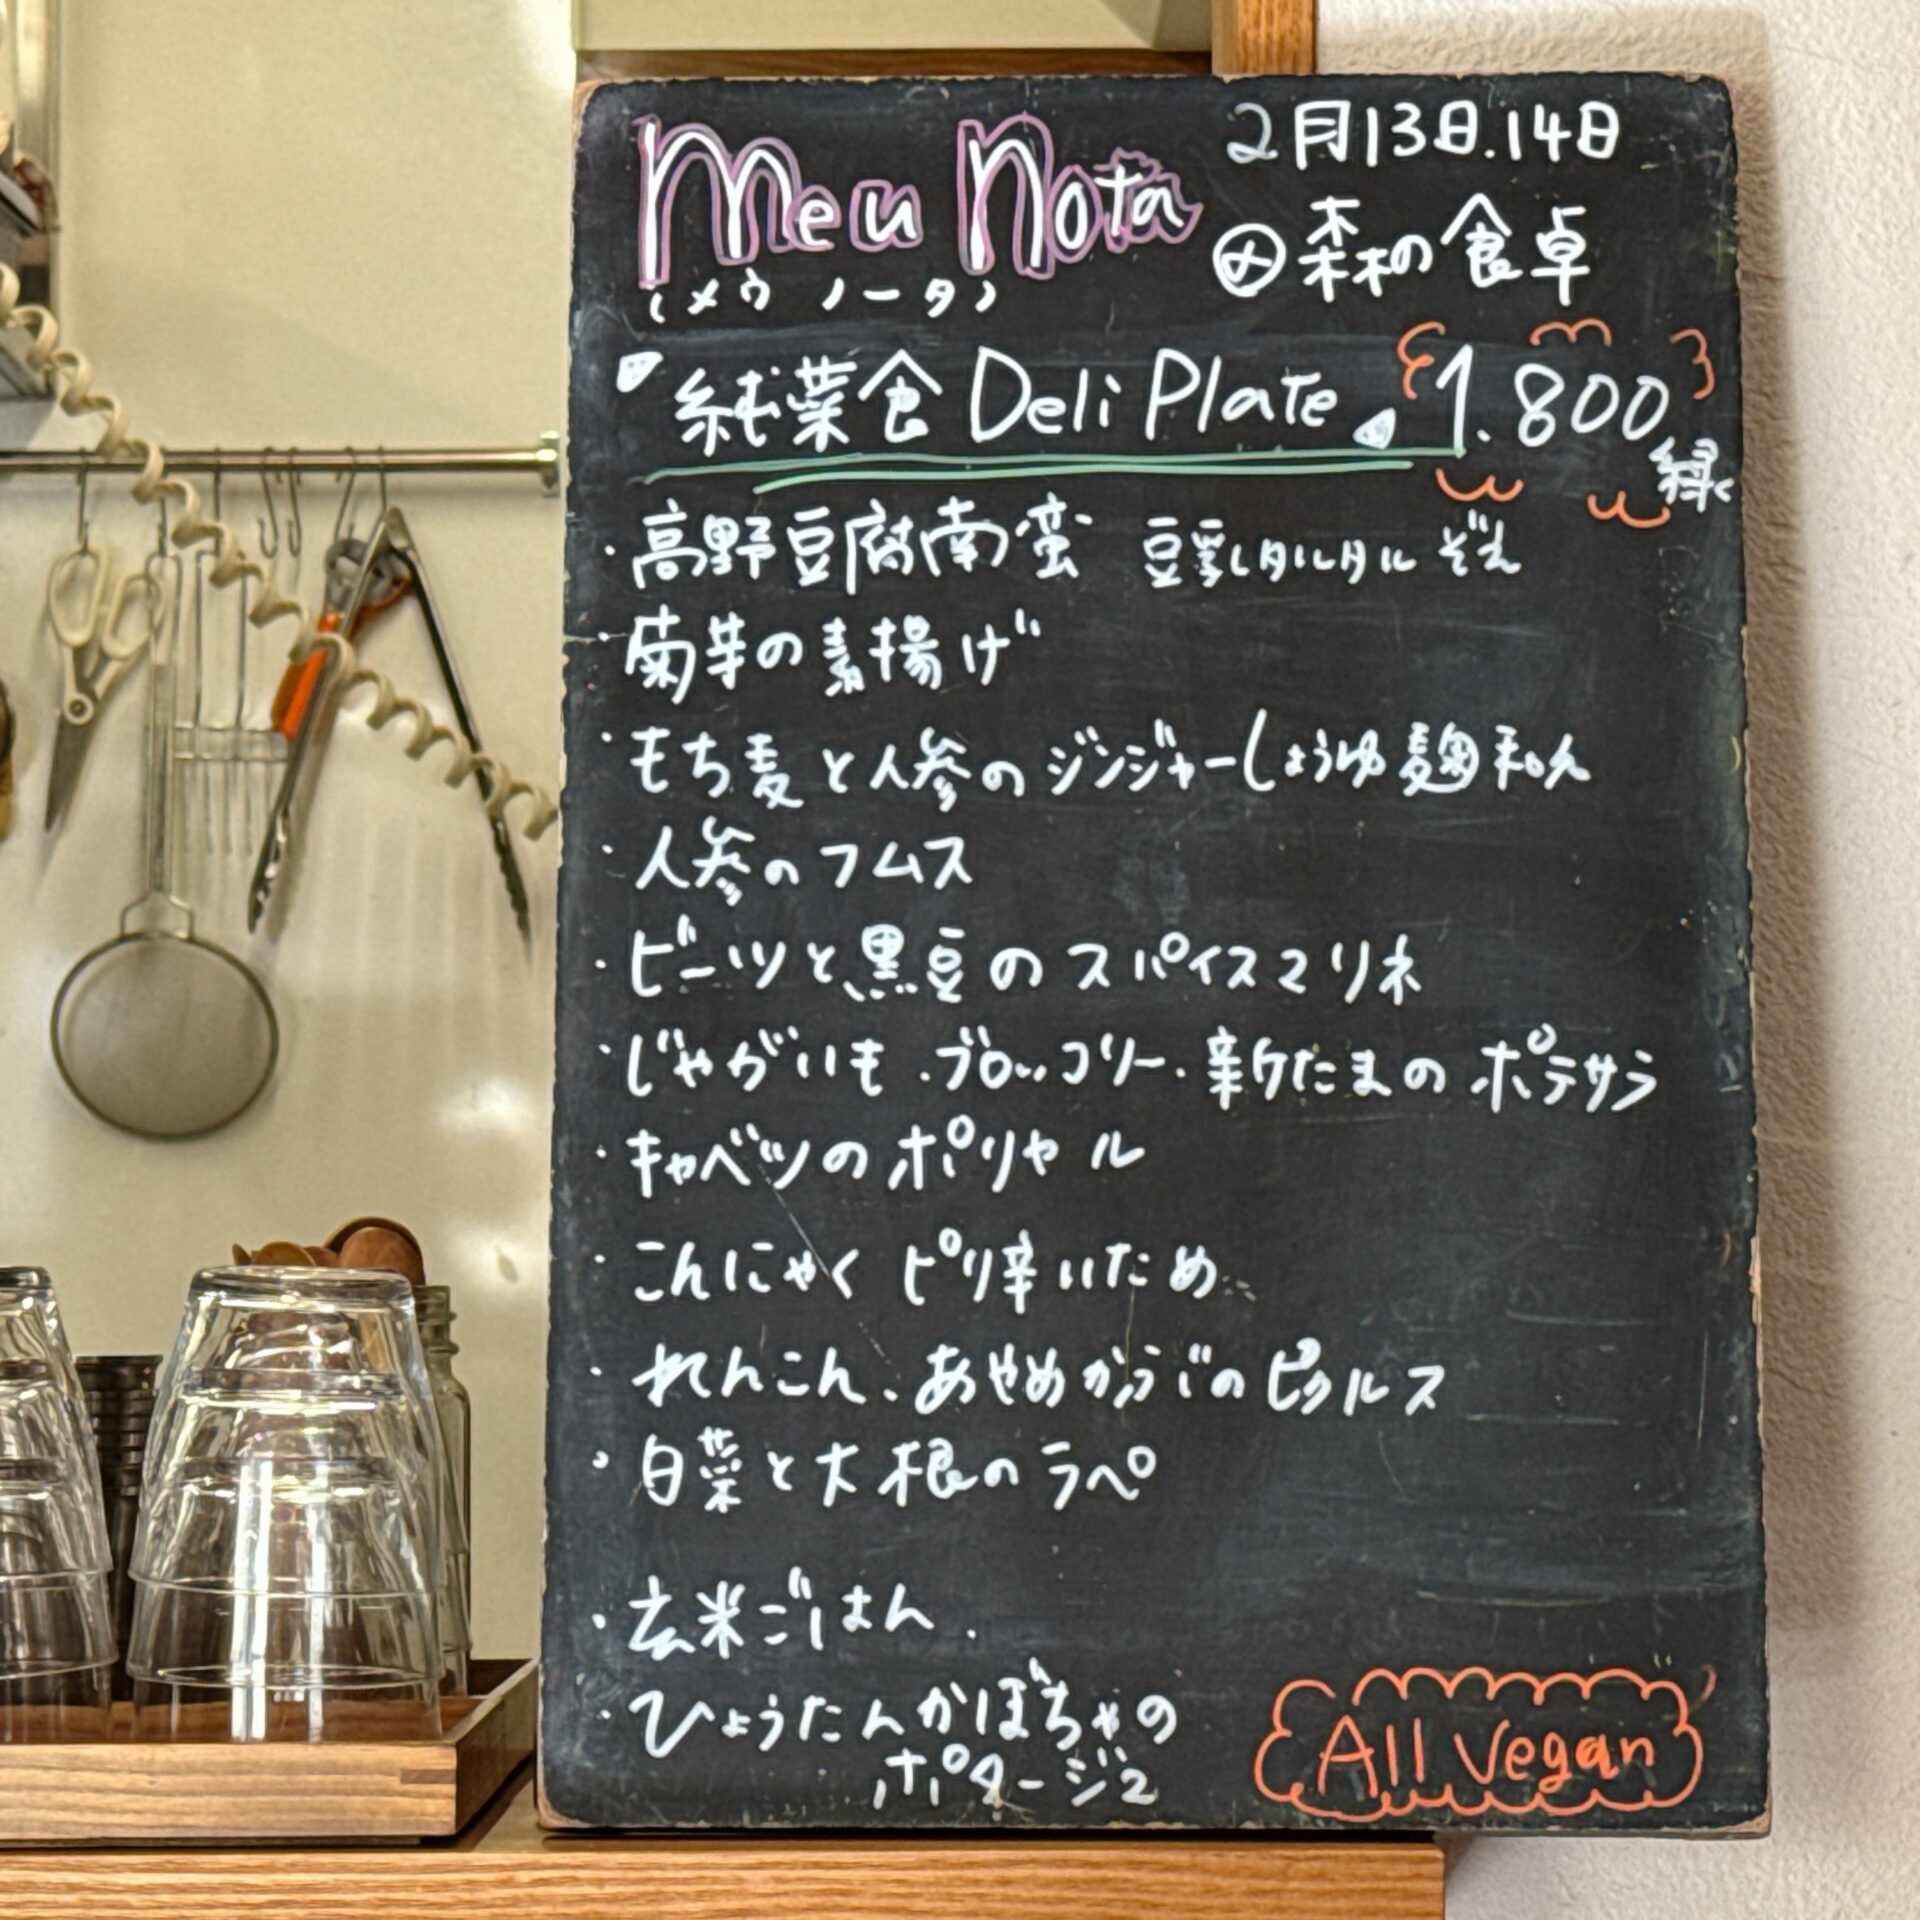 Meu Nota
(メウ ノータ)
2月13日.14日
森の食卓
純菜食 Deli Plate 1.800
縁
・高野豆腐南蛮 豆乳タルタル ぞえ
・菊芋の素揚げ
・もち麦と人参のジンジャーしょうゆ麹和え
・人参のフムス
・ビーツと黒豆のスパイスマリネ
・じゃがいも・ブロッコリー・新たまのポテサラ
・キャベツのポリヤル
・こんにゃく ピリ辛いため
・れんこん、あやめかぶのピクルス
・白菜と大根のラペ
・玄米ごはん.
・ひょうたんかぼちゃの
ポタージュ
All Vegan